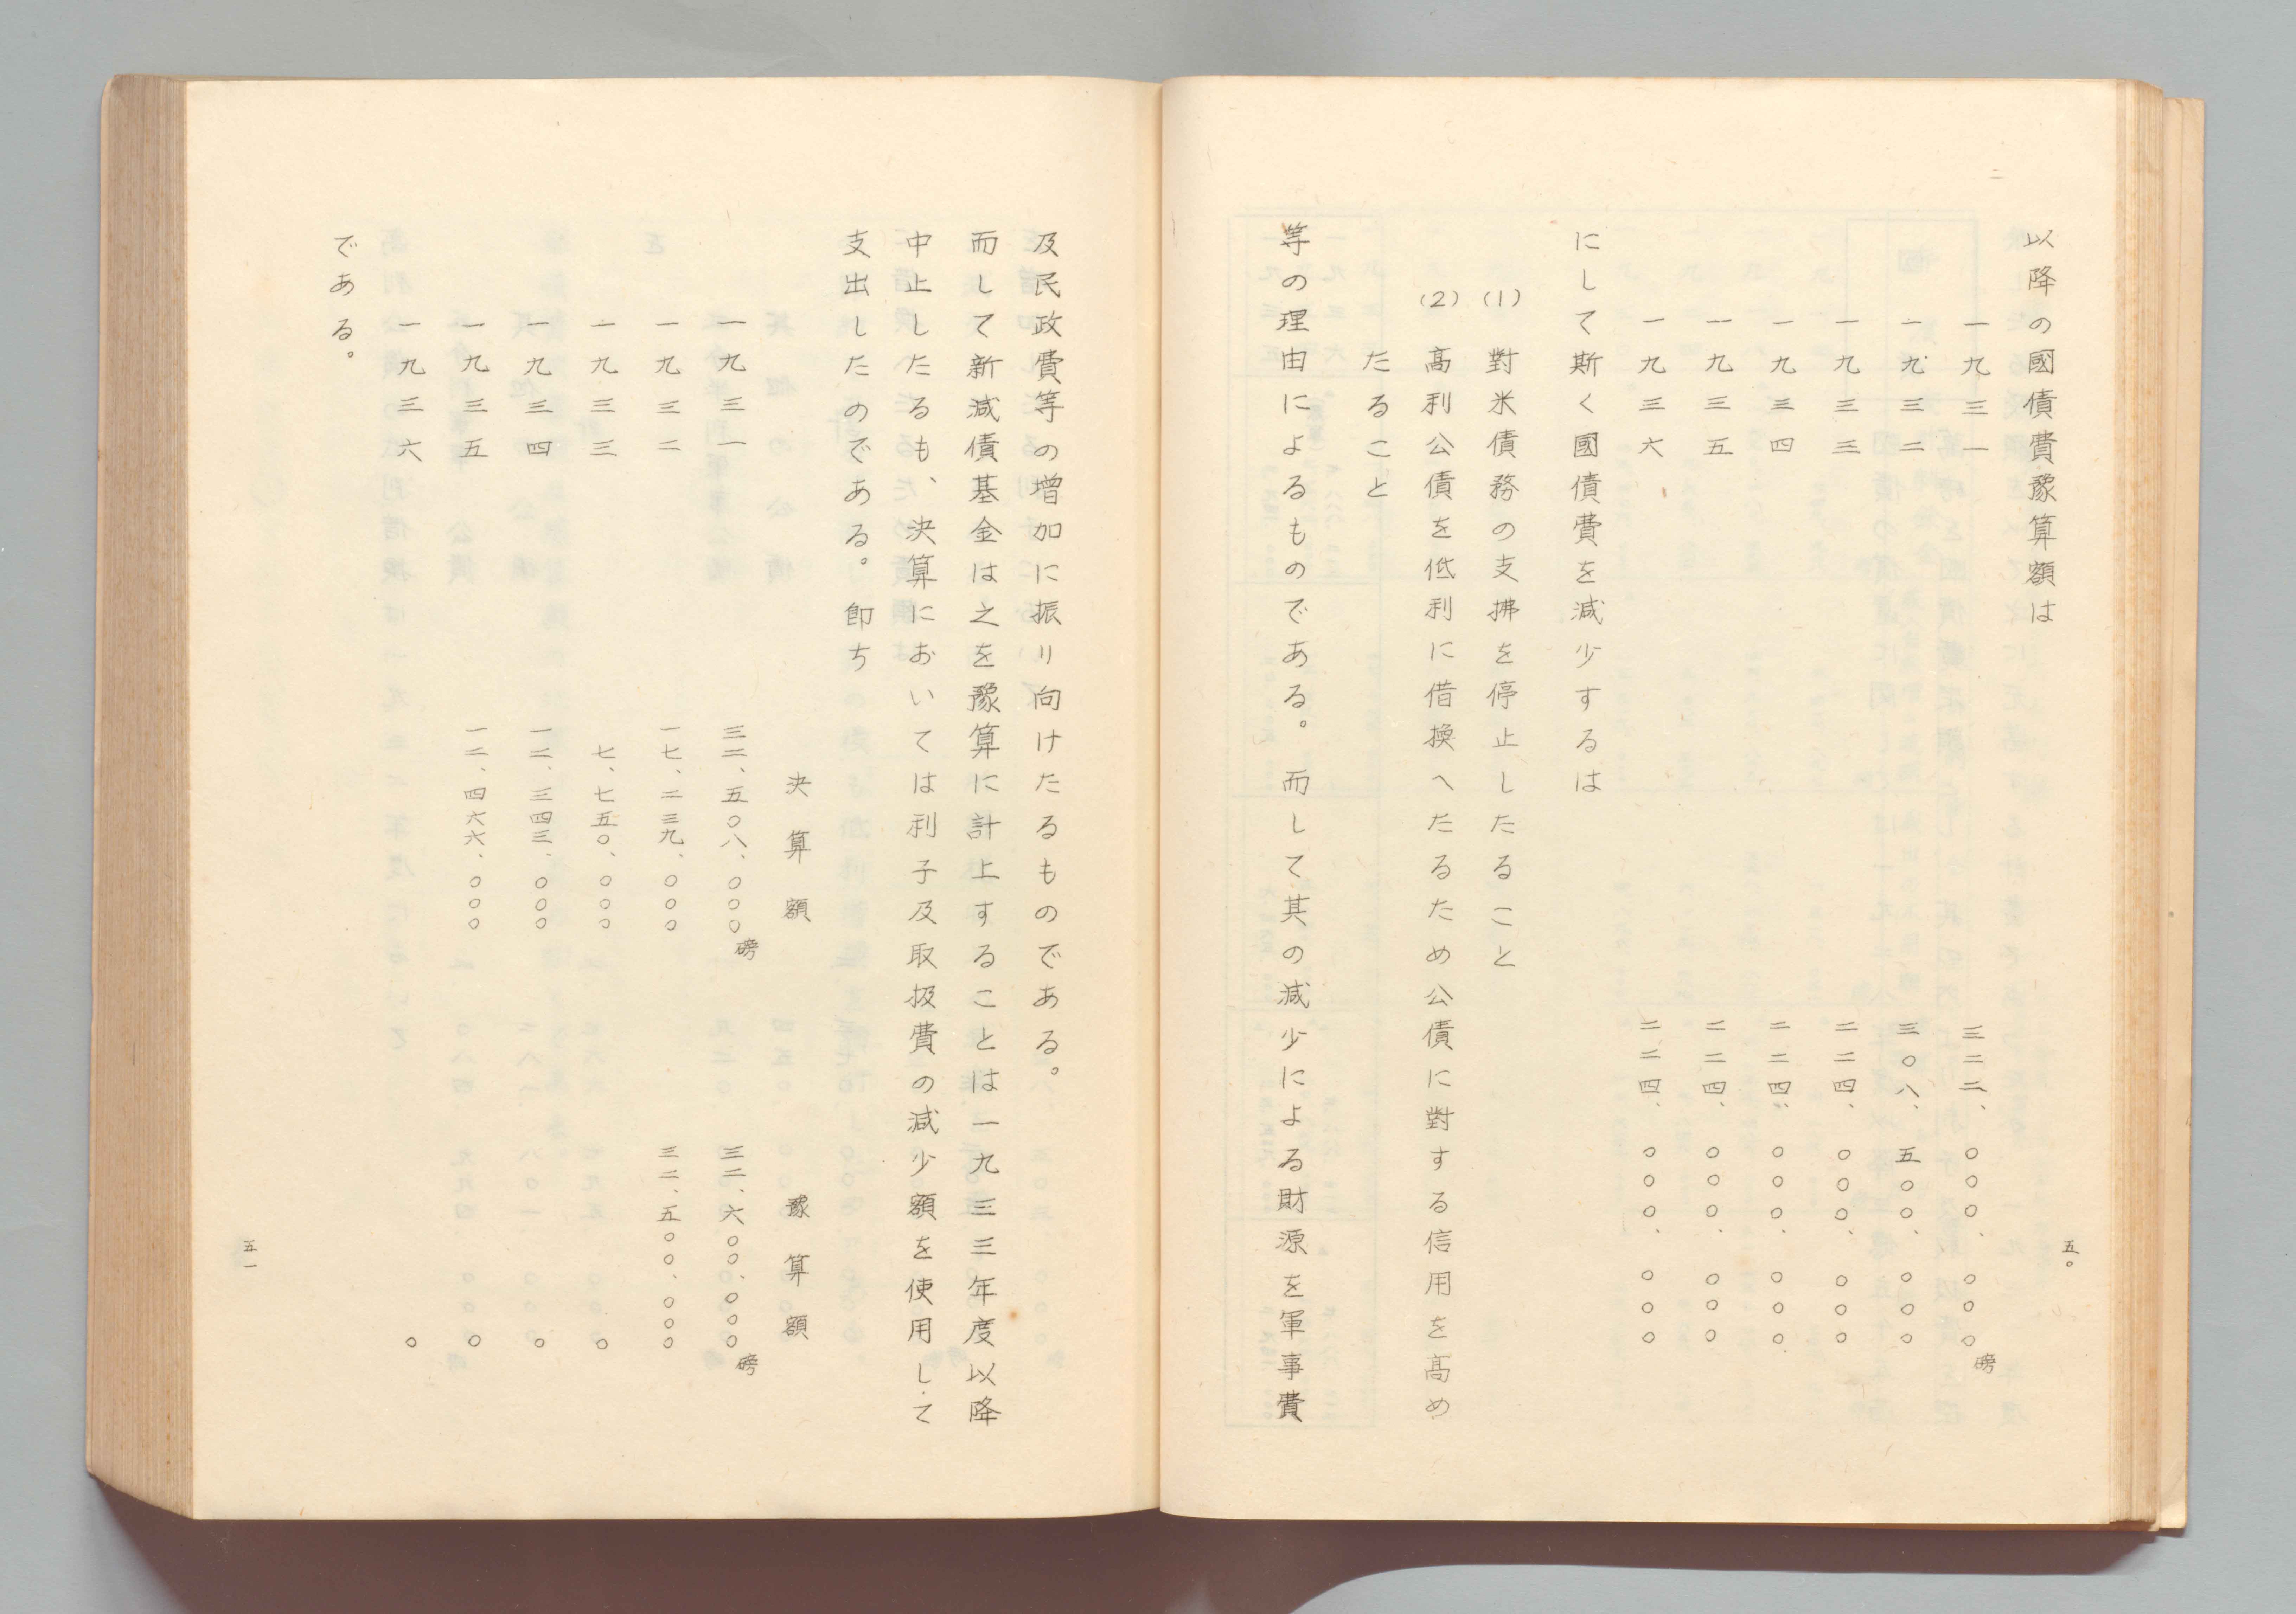 以降の國債費豫算額は
一九三一 三二二、〇〇〇、〇〇〇磅
一九三二 三〇八、五〇〇、〇〇〇
一九三三 二二四、〇〇〇、〇〇〇
一九三四 二二四、〇〇〇、〇〇〇
一九三五 二二四、〇〇〇、〇〇〇
一九三六 二二四、〇〇〇、〇〇〇
にして斯く國債費を減少するは
(1) 對米債務の支拂を停止したること
(2) 高利公債を低利に借換へたるため公債に對する信用を高め
たること
等の理由によるものである。而して其の減少による財源を軍事費
五〇
及民政費等の増加に振り向けたるものである。
而して新減債基金は之を豫算に計上することは一九三三年度以降
中止したるも、決算においては利子及取扱費の減少額を使用して
支出したのである。卽ち
決算額 豫算額
一九三一 三二、五〇八、〇〇〇磅 三二、六〇〇、〇〇〇磅
一九三二 一七、二三九、〇〇〇 三二、五〇〇、〇〇〇
一九三三 七、七五〇、〇〇〇 〇
一九三四 一二、三四三、〇〇〇 〇
一九三五 一二、四六六、〇〇〇 〇
一九三六 〇
である。
五一